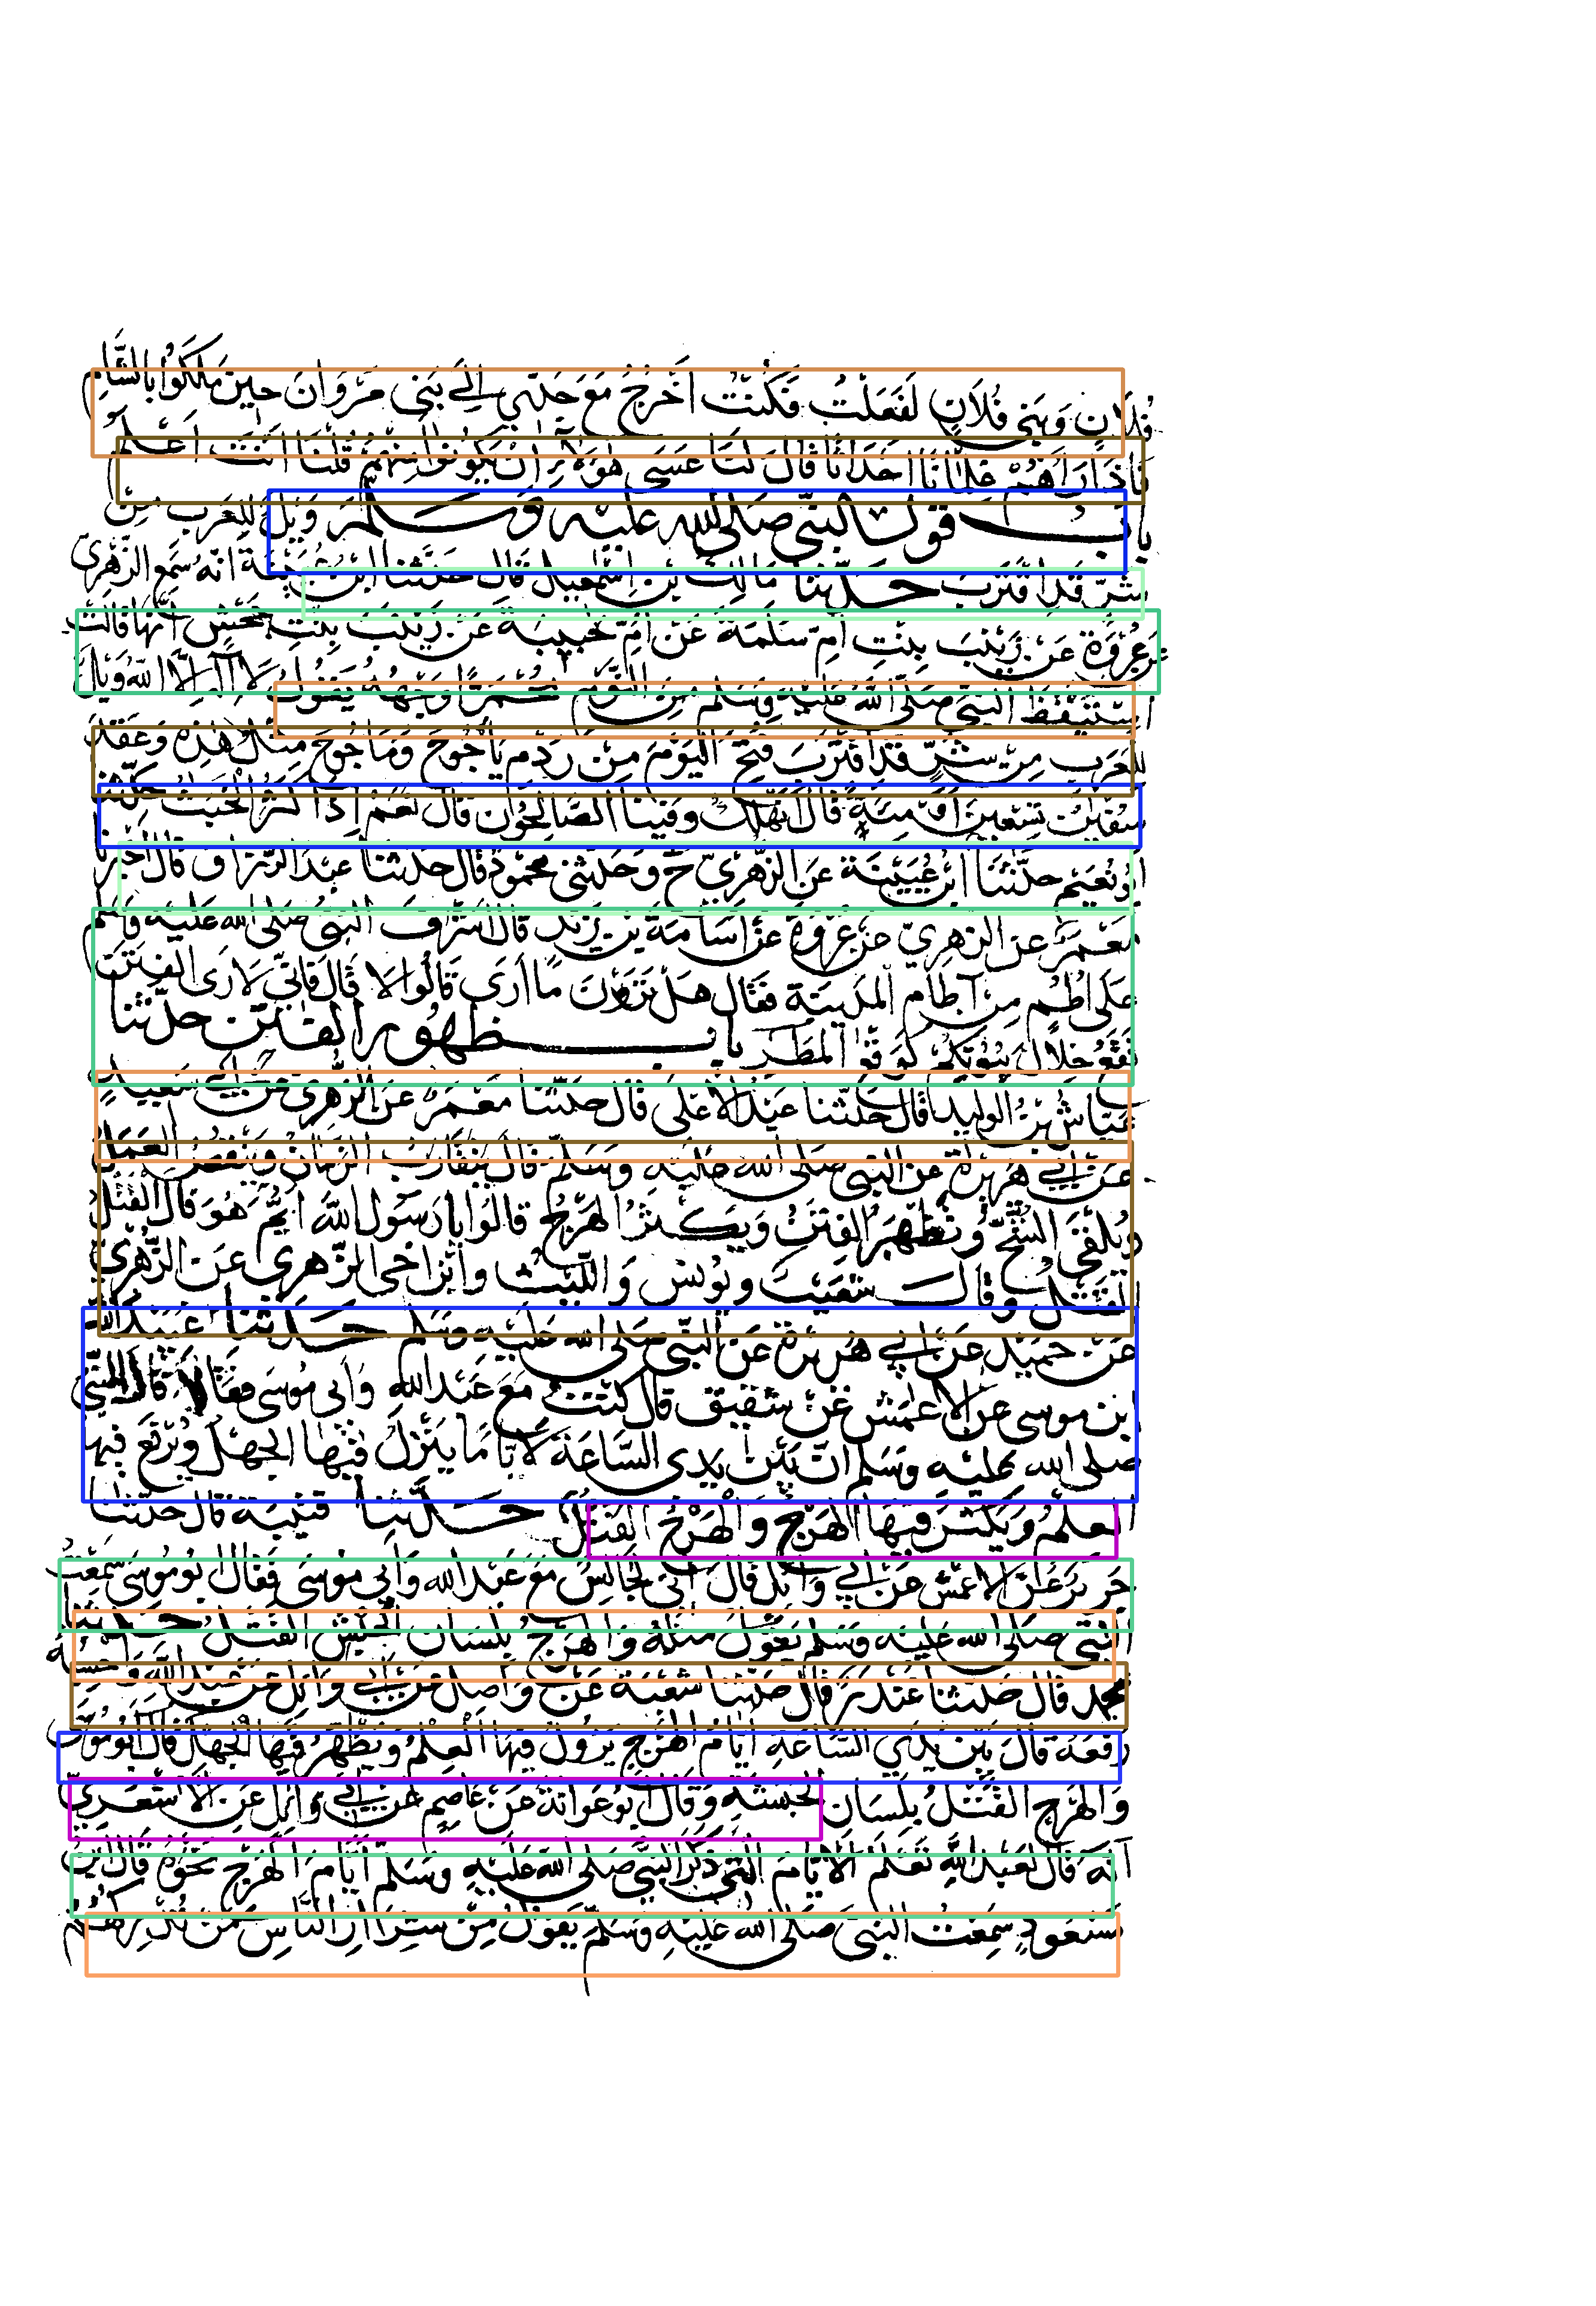 فُلَانٍ وَبَنِى فُلَانٍ لَفَعَلْتُ فَكُنْتُ اَخْرُجُ مَعَ جَدِّى اِلَى بَنِى مَرْوَانَ حِينَ مَلَكُوا بِالشَّامِ
فَاِذَا رَاٰهُمْ غِلْمَانًا اَحْدَاثًا قَالَ لَنَا عَسَى هٰؤُلَاءِ اَنْ يَكُونُوا مِنْهُمْ قُلْنَا اَنْتَ اَعْلَمُ
بَابُ قَوْلِ النَّبِىِّ صَلَّى اللّٰه عَلَيْهِ وَسَلَّمَ وَيْلٌ لِلْعَرَبِ مِنْ
شَرٍّ قَدِ اقْتَرَبَ حَدَّثَنَا مَالِكُ بْنُ اِسْمٰعِيلَ قَالَ حَدَّثَنَا ابْنُ عُيَيْنَةَ اَنَّهُ سَمِعَ الزُّهْرِىَّ
عَنْ عُرْوَةَ عَنْ زَيْنَبَ بِنْتِ اُمِّ سَلَمَةَ عَنْ اُمِّ حَبِيبَةَ عَنْ زَيْنَبَ بِنْتِ جَحْشٍ اَنَّهَا قَالَتْ
اسْتَيْقَظَ النَّبِىُّ صَلَّى اللّٰهُ عَلَيْهِ وَسَلَّمَ مِنَ النَّوْمِ مُحْمَرًّا وَجْهُهُ يَقُولُ لَا اِلٰهَ اِلَّا اللّٰهُ وَيْلٌ
لِلْعَرَبِ مِنْ شَرٍّ قَدِ اقْتَرَبَ فُتِحَ الْيَوْمَ مِنْ رَدْمِ يَاْجُوجَ وَمَاْجُوجَ مِثْلُ هٰذِهِ وَعَقَدَ
سُفْيَانُ تِسْعِينَ اَوْ مِئَةً قَالَ اَنَهْلِكُ وَفِينَا الصَّالِحُونَ قَالَ نَعَمْ اِذَا كَثُرَ الْخَبَثُ حَدَّثَنَا
اَبُو نُعَيْمٍ حَدَّثَنَا ابْنُ عُيَيْنَةَ عَنِ الزُّهْرِىِّ ح وَحَدَّثَنِى مَحْمُودٌ قَالَ حَدَّثَنَا عَبْدُ الرَّزَّاقِ قَالَ اَخْبَرَنَا
مَعْمَرٌ عَنِ الزُّهْرِىِّ عَنْ عُرْوَةَ عَنْ اُسَامَةَ بْنِ زَيْدٍ قَالَ اَشْرَفَ النَّبِىُّ صَلَّى اللّٰه عَلَيْهِ وَسَلَّمَ
عَلَى اُطُمٍ مِنْ آطَامِ الْمَدِينَةِ فَقَالَ هَلْ تَرَوْنَ مَا اَرَى قَالُوا لَا قَالَ فَاِنِّى لَاَرَى الْفِتَنَ
تَقَعُ خِلَالَ بُيُوتِكُمْ كَوَقْعِ الْمَطَرِ بَابُ ظُهُورِ الْفِتَنِ حَدَّثَنَا
عَيَّاشُ بْنُ الْوَلِيدِ قَالَ حَدَّثَنَا عَبْدُ الْاَعْلَى قَالَ حَدَّثَنَا مَعْمَرٌ عَنِ الزُّهْرِىِّ عَنْ سَعِيدٍ
عَنْ اَبِي هُرَيْرَةَ عَنِ النَّبِىِّ صَلَّى اللّٰه عَلَيْهِ وَسَلَّمَ قَالَ يَتَقَارَبُ الزَّمَانُ وَيَنْقُصُ الْعَمَلُ
وَيُلْقَى الشُّحُّ وَتَظْهَرُ الْفِتَنُ وَيَكْثُرُ الْهَرْجُ قَالُوا يَا رَسُولَ اللّٰهِ اَيُّمَ هُوَ قَالَ الْقَتْلُ
الْقَتْلُ وَقَالَ شُعَيْبٌ وَيُونُسُ وَاللَّيْثُ وَابْنُ اَخِى الزُّهْرِىِّ عَنِ الزُّهْرِىِّ
عَنْ حُمَيْدٍ عَنْ اَبِي هُرَيْرَةَ عَنِ النَّبِىِّ صَلَّى اللّٰه عَلَيْهِ وَسَلَّمَ حَدَّثَنَا عُبَيْدُ اللّٰهِ
ابْنُ مُوسَى عَنِ الْاَعْمَشِ عَنْ شَقِيقٍ قَالَ كُنْتُ مَعَ عَبْدِ اللّٰهِ وَاَبِى مُوسَى فَقَالَا قَالَ النَّبِىُّ
صَلَّى اللّٰه عَلَيْهِ وَسَلَّمَ اِنَّ بَيْنَ يَدَىِ السَّاعَةِ لَاَيَّامًا يَنْزِلُ فِيهَا الْجَهْلُ وَيُرْفَعُ فِيهَا
الْعِلْمُ وَيَكْثُرُ فِيهَا الْهَرْجُ وَالْهَرْجُ الْقَتْلُ حَدَّثَنَا قُتَيْبَةُ قَالَ حَدَّثَنَا
جَرِيرٌ عَنِ الْاَعْمَشِ عَنْ اَبِي وَائِلٍ قَالَ اِنِّى لَجَالِسٌ مَعَ عَبْدِ اللّٰهِ وَاَبِى مُوسَى فَقَالَ اَبُو مُوسَى سَمِعْتُ
النَّبِىَّ صَلَّى اللّٰه عَلَيْهِ وَسَلَّمَ يَقُولُ مِثْلَهُ وَالْهَرْجُ بِلِسَانِ الْحَبَشِ الْقَتْلُ حَدَّثَنَا
مُحَمَّدٌ قَالَ حَدَّثَنَا غُنْدَرٌ قَالَ حَدَّثَنَا شُعْبَةُ عَنْ وَاصِلٍ عَنْ اَبِي وَائِلٍ عَنْ عَبْدِ اللّٰهِ وَاَحْسِبُهُ
رَفَعَهُ قَالَ بَيْنَ يَدَىِ السَّاعَةِ اَيَّامُ الْهَرْجِ يَزُولُ فِيهَا الْعِلْمُ وَيَظْهَرُ فِيهَا الْجَهْلُ قَالَ اَبُو مُوسَى
وَالْهَرْجُ الْقَتْلُ بِلِسَانِ الْحَبَشَةِ وَقَالَ اَبُو عَوَانَةَ عَنْ عَاصِمٍ عَنْ اَبِي وَائِلٍ عَنِ الْاَشْعَرِىِّ
اَنَّهُ قَالَ لِعَبْدِ اللّٰهِ تَعْلَمُ الْاَيَّامَ الَّتِى ذَكَرَ النَّبِىُّ صَلَّى اللّٰه عَلَيْهِ وَسَلَّمَ اَيَّامَ الْهَرْجِ نَحْوَهُ قَالَ ابْنُ
مَسْعُودٍ سَمِعْتُ النَّبِىَّ صَلَّى اللّٰه عَلَيْهِ وَسَلَّمَ يَقُولُ مِنْ شِرَارِ النَّاسِ مَنْ تُدْرِكْهُمُ